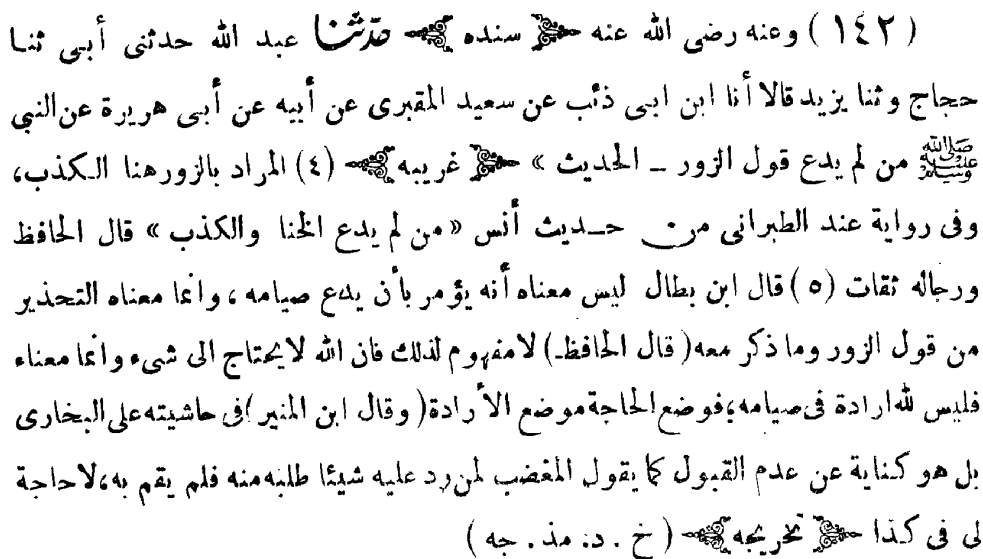 ( ١٤٢ ) وعنه رضى الله عنه ﴿ سنده ﴾ حدّثنا عبد الله حدثنى أبى ثنا
حجاج وثنا يزيد قالا أنا ابن ابى ذئب عن سعيد المقبرى عن أبيه عن أبى هريرة عن النبي
ﷺ من لم يدع قول الزور ــ الحديث » ﴿ غريبه ﴾ (٤) المراد بالزور هنا الكذب،
وفى رواية عند الطبرانى من حديث أنس «من لم يدع الخنا والكذب» قال الحافظ
ورجاله ثقات (٥) قال ابن بطال ليس معناه أنه يؤمر بأن يدع صيامه، وانما معناه التحذير
من قول الزور وما ذكر معه (قال الحافظ) لا مفهوم لذلك فان الله لا يحتاج الى شىء وانما معناه
فليس لله ارادة فى صيامه؛ فوضع الحاجة موضع الأرادة (وقال ابن المنير) فى حاشيته على البخارى
بل هو كناية عن عدم القبول كما يقول المغضب لمن رد عليه شيئا طلبه منه فلم يقم به، لا حاجة
لى فى كذا ﴿ تخريجه ﴾ ( خ . د . مذ . جه )